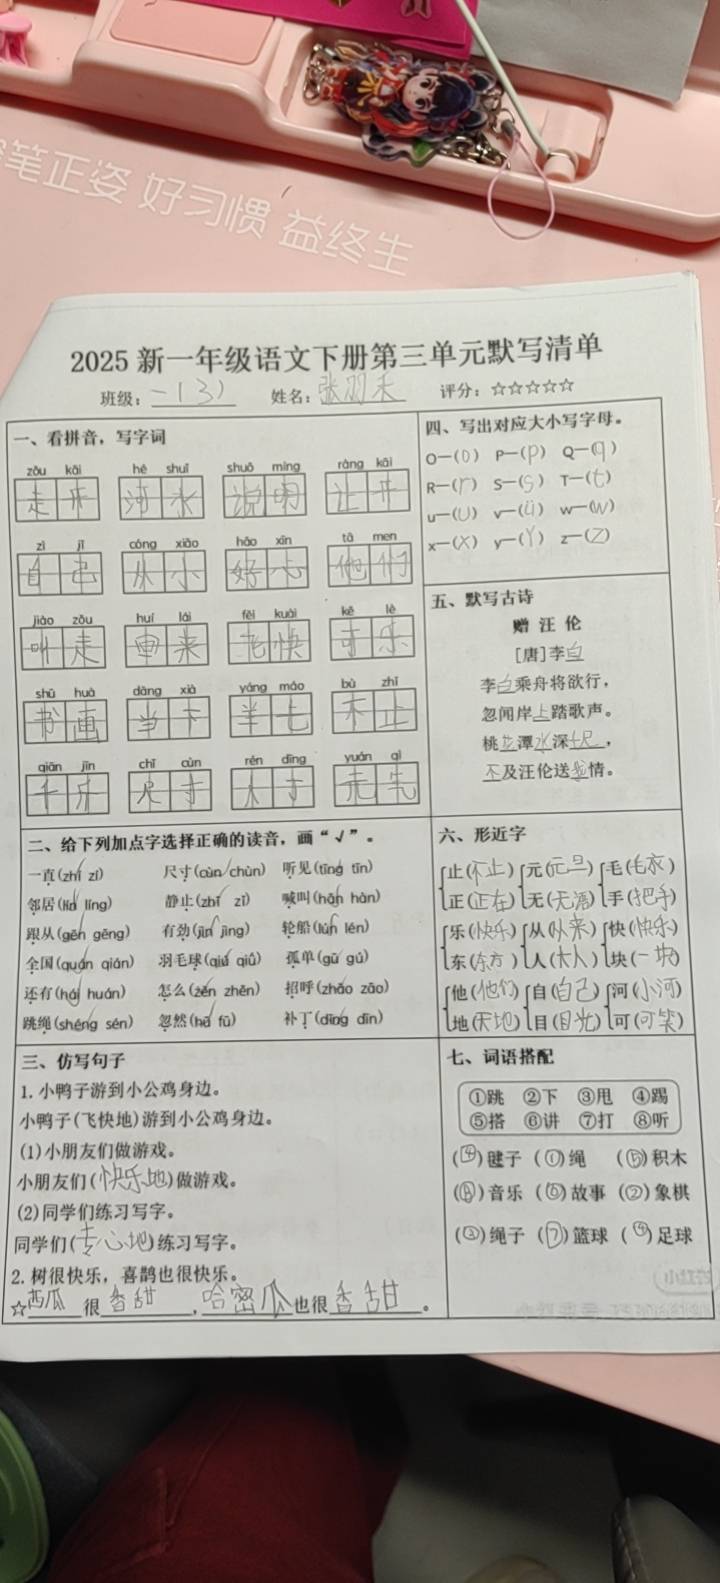 笔正姿 好习惯 益终生
2025 新一年级语文下册第三单元默写清单
班级：一（3） 姓名： 评分：☆☆☆☆☆
一、看拼音，写字词
zǒu kāi hé shuǐ shuō míng ràng kāi
走开 河水 说明 让开
zì jǐ cóng xiǎo hǎo xīn tā men
自己 从小 好心 他们
jiào zǒu huí lái fēi kuài kě lè
叫走 回来 飞快 可乐
shū huà dāng xià yáng máo bù zhǐ
书画 当下 羊毛 不止
qiān jīn chǐ cùn rén dīng yuán qì
千斤 尺寸 人丁 元气
二、给下列加点字选择正确的读音，画“√”。
一直(zhí zí) 尺寸(cùn chùn) 听见(tīng tīn)
邻居(lín líng) 静止(zhǐ zǐ) 喊叫(hǎn hàn)
跟从(gēn gēng) 有劲(jìn jìng) 轮船(lún lén)
全国(quán qián) 羽毛球(qiú qiǔ) 孤单(gū gú)
还有(hái huán) 怎么(zěn zhěn) 招呼(zhāo zāo)
跳绳(shéng sén) 忽然(hū fū) 补丁(dīng dīn)
三、仿写句子
1. 小鸭子游到小公鸡身边。
小鸭子(飞快地)游到小公鸡身边。
(1)小朋友们做游戏。
小朋友们(快乐地)做游戏。
(2)同学们练习写字。
同学们(专心地)练习写字。
2. 树很快乐，喜鹊也很快乐。
☆西瓜很香甜，哈密瓜也很香甜。
四、写出对应大小写字母。
O—(o) P—(p) Q—(q)
R—(r) S—(s) T—(t)
u—(U) v—(ü) w—(W)
x—(X) y—(Y) z—(Z)
五、默写古诗
赠汪伦
[唐]李白
李白乘舟将欲行，
忽闻岸上踏歌声。
桃花潭水深千尺，
不及汪伦送我情。
六、形近字
止(不止) 元(元旦) 毛(毛衣)
正(正在) 无(无语) 手(把手)
乐(快乐) 从(从来) 快(快乐)
东(东方) 人(大人) 块(一块)
他(他们) 自(自己) 河(小河)
地(天地) 目(目光) 可(可笑)
七、词语搭配
①跳 ②下 ③甩 ④踢
⑤搭 ⑥讲 ⑦打 ⑧听
(④)毽子 (①)绳 (⑤)积木
(⑧)音乐 (⑥)故事 (②)象棋
(③)绳子 (⑦)篮球 (④)足球